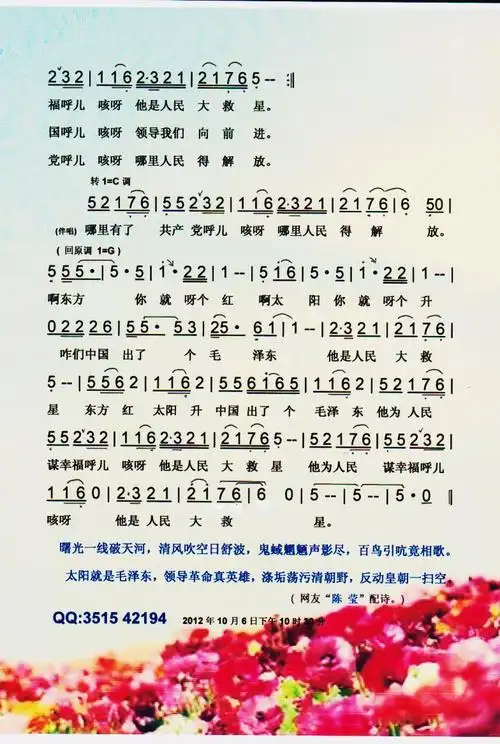 2̲3̲2̲ | 1̲1̲6̲ 2̲·3̲2̲1̲ | 2̲1̲7̲6̲ 5 -- :‖
福呼儿 咳呀 他是人民 大 救 星。
国呼儿 咳呀 领导我们 向 前 进。
党呼儿 咳呀 哪里人民 得 解 放。
转 1=C 调
5 2 1 7 6 | 5 5 2 3 2 | 1 1 6 2·3 2 1 | 2 1 7 6 | 6 5 0 |
(伴唱) 哪里有了 共产 党呼儿 咳呀 哪里人民 得 解 放。
( 回原调 1=G )
5 5 5 · | 5 · 5 | 1 · 2 2 | 1 -- | 5 1 5 · | 5 · 5 | 1 · 2 2 | 1 -- |
啊东方 你 就 呀个 红 啊太 阳 你 就 呀 个 升
0 2 2 2 6 | 5 5 · 5 3 | 2 5 · 6 1 | 1 -- | 2·3 2 1 | 2 1 7 6 |
咱们中国 出了 个 毛 泽东 他是人民 大 救
5 -- | 5 5 6 2 | 1 1 6 2 | 5 5 6 1 6 5 | 1 1 6 2 | 5 5 2 1 |
星 东方 红 太阳 升 中国 出了 个 毛泽 东 他为 人民
5 5 2 3 2 | 1 1 6 2·3 2 1 | 2 1 7 6 5 | 5 5 2 1 | 5 5 2 3 2 |
谋幸福呼儿 咳呀 他是人民 大 救 星 他为人民 谋幸福呼儿
1 1 6 0 | 2·3 2 1 | 2 1 7 6 | 6 0 | 5 -- | 5 -- | 5 · 0 ‖
咳呀 他是 人民 大 救 星。
曙光一线破天河，清风吹空日舒波，鬼蜮魍魉声影尽，百鸟引吭竟相歌。
太阳就是毛泽东，领导革命真英雄，涤垢荡污清朝野，反动皇朝一扫空。
( 网友“陈 莹”配诗。)
QQ:3515 42194 2012 年 10 月 6 日下午 10 时 30 分